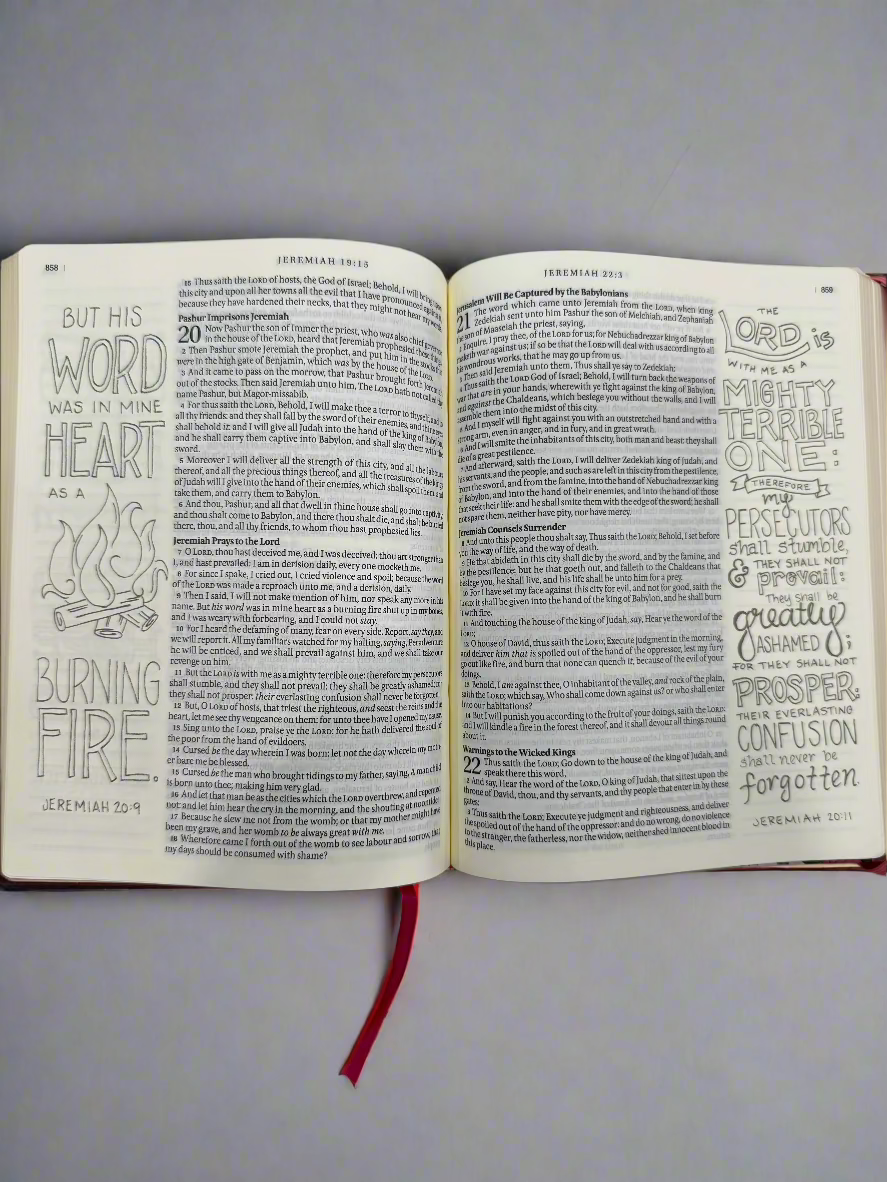 858
JEREMIAH 19:15
BUT HIS
WORD
WAS IN MINE
HEART
AS A
BURNING
FIRE.
JEREMIAH 20:9
15 Thus saith the LORD of hosts, the God of Israel; Behold, I will bring
this city and upon all her towns all the evil that I have pronounced against
because they have hardened their necks, that they might not hear my words.
Pashur Imprisons Jeremiah
20 Now Pashur the son of Immer the priest, who was also chief governor
in the house of the LORD, heard that Jeremiah prophesied these things.
2 Then Pashur smote Jeremiah the prophet, and put him in the stocks that
were in the high gate of Benjamin, which was by the house of the LORD.
3 And it came to pass on the morrow, that Pashur brought forth Jeremiah
out of the stocks. Then said Jeremiah unto him, The LORD hath not called thy
name Pashur, but Magor-missabib.
4 For thus saith the LORD, Behold, I will make thee a terror to thyself, and to
all thy friends: and they shall fall by the sword of their enemies, and thine eyes
shall behold it: and I will give all Judah into the hand of the king of Babylon,
and he shall carry them captive into Babylon, and shall slay them with the
sword.
5 Moreover I will deliver all the strength of this city, and all the labours
thereof, and all the precious things thereof, and all the treasures of the kings
of Judah will I give into the hand of their enemies, which shall spoil them, and
take them, and carry them to Babylon.
6 And thou, Pashur, and all that dwell in thine house shall go into captivity:
and thou shalt come to Babylon, and there thou shalt die, and shalt be buried
there, thou, and all thy friends, to whom thou hast prophesied lies.
Jeremiah Prays to the Lord
7 O LORD, thou hast deceived me, and I was deceived: thou art stronger than
I, and hast prevailed: I am in derision daily, every one mocketh me.
8 For since I spake, I cried out, I cried violence and spoil; because the word
of the LORD was made a reproach unto me, and a derision, daily.
9 Then I said, I will not make mention of him, nor speak any more in his
name. But his word was in mine heart as a burning fire shut up in my bones,
and I was weary with forbearing, and I could not stay.
10 For I heard the defaming of many, fear on every side. Report, say they, and
we will report it. All my familiars watched for my halting, saying, Peradventure
he will be enticed, and we shall prevail against him, and we shall take our
revenge on him.
11 But the LORD is with me as a mighty terrible one: therefore my persecutors
shall stumble, and they shall not prevail: they shall be greatly ashamed; for
they shall not prosper: their everlasting confusion shall never be forgotten.
12 But, O LORD of hosts, that triest the righteous, and seest the reins and the
heart, let me see thy vengeance on them: for unto thee have I opened my cause.
13 Sing unto the LORD, praise ye the LORD: for he hath delivered the soul of
the poor from the hand of evildoers.
14 Cursed be the day wherein I was born: let not the day wherein my mother
bare me be blessed.
15 Cursed be the man who brought tidings to my father, saying, A man child
is born unto thee; making him very glad.
16 And let that man be as the cities which the LORD overthrew, and repented
not: and let him hear the cry in the morning, and the shouting at noontide;
17 Because he slew me not from the womb; or that my mother might have
been my grave, and her womb to be always great with me.
18 Wherefore came I forth out of the womb to see labour and sorrow, that
my days should be consumed with shame?
JEREMIAH 22:3
859
Jerusalem Will Be Captured by the Babylonians
21 The word which came unto Jeremiah from the LORD, when king
Zedekiah sent unto him Pashur the son of Melchiah, and Zephaniah
the son of Maaseiah the priest, saying,
2 Enquire, I pray thee, of the LORD for us; for Nebuchadrezzar king of Babylon
maketh war against us; if so be that the LORD will deal with us according to all
his wondrous works, that he may go up from us.
3 Then said Jeremiah unto them, Thus shall ye say to Zedekiah:
4 Thus saith the LORD God of Israel; Behold, I will turn back the weapons of
war that are in your hands, wherewith ye fight against the king of Babylon,
and against the Chaldeans, which besiege you without the walls, and I will
assemble them into the midst of this city.
5 And I myself will fight against you with an outstretched hand and with a
strong arm, even in anger, and in fury, and in great wrath.
6 And I will smite the inhabitants of this city, both man and beast: they shall
die of a great pestilence.
7 And afterward, saith the LORD, I will deliver Zedekiah king of Judah, and
his servants, and the people, and such as are left in this city from the pestilence,
from the sword, and from the famine, into the hand of Nebuchadrezzar king
of Babylon, and into the hand of their enemies, and into the hand of those
that seek their life: and he shall smite them with the edge of the sword; he shall
not spare them, neither have pity, nor have mercy.
Jeremiah Counsels Surrender
8 And unto this people thou shalt say, Thus saith the LORD; Behold, I set before
you the way of life, and the way of death.
9 He that abideth in this city shall die by the sword, and by the famine, and
by the pestilence: but he that goeth out, and falleth to the Chaldeans that
besiege you, he shall live, and his life shall be unto him for a prey.
10 For I have set my face against this city for evil, and not for good, saith the
LORD: it shall be given into the hand of the king of Babylon, and he shall burn
it with fire.
11 And touching the house of the king of Judah, say, Hear ye the word of the
LORD;
12 O house of David, thus saith the LORD; Execute judgment in the morning,
and deliver him that is spoiled out of the hand of the oppressor, lest my fury
go out like fire, and burn that none can quench it, because of the evil of your
doings.
13 Behold, I am against thee, O inhabitant of the valley, and rock of the plain,
saith the LORD; which say, Who shall come down against us? or who shall enter
into our habitations?
14 But I will punish you according to the fruit of your doings, saith the LORD:
and I will kindle a fire in the forest thereof, and it shall devour all things round
about it.
Warnings to the Wicked Kings
22 Thus saith the LORD; Go down to the house of the king of Judah, and
speak there this word,
2 And say, Hear the word of the LORD, O king of Judah, that sittest upon the
throne of David, thou, and thy servants, and thy people that enter in by these
gates:
3 Thus saith the LORD; Execute ye judgment and righteousness, and deliver
the spoiled out of the hand of the oppressor: and do no wrong, do no violence
to the stranger, the fatherless, nor the widow, neither shed innocent blood in
this place.
THE
LORD is
WITH ME AS A
MIGHTY
TERRIBLE
ONE:
THEREFORE
my
PERSECUTORS
shall stumble,
& THEY SHALL NOT
prevail:
They shall be
greatly
ASHAMED;
FOR THEY SHALL NOT
PROSPER:
THEIR EVERLASTING
CONFUSION
shall never be
forgotten.
JEREMIAH 20:11